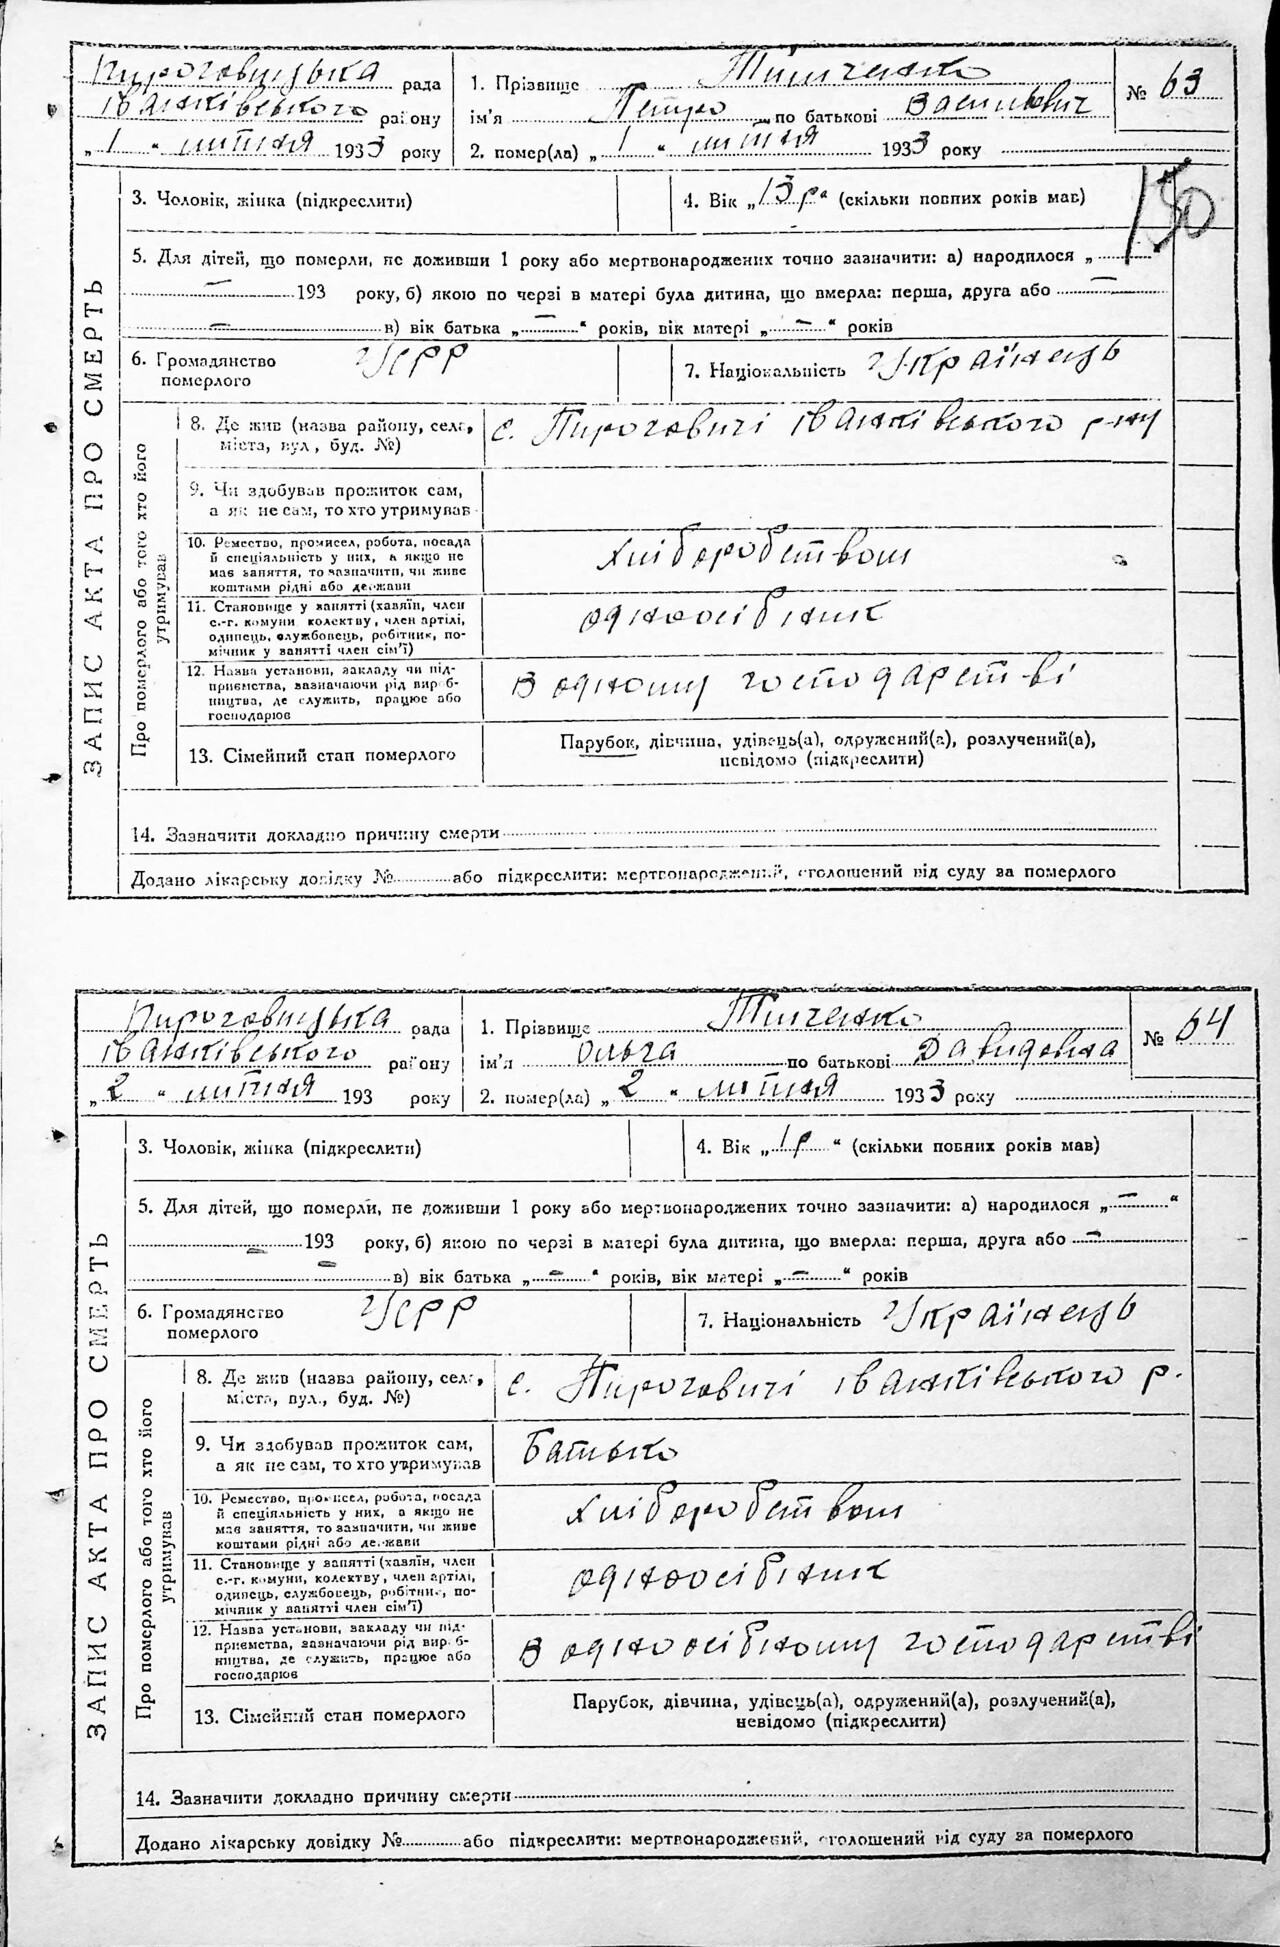 Пироговицька рада
Іванківського району
„ 1 “ липня 1933 року
1. Прізвище Тимченко
ім'я Петро по батькові Васильович
2. помер(ла) „ 1 “ липня 1933 року
№ 63
150
ЗАПИС АКТА ПРО СМЕРТЬ
3. Чоловік, жінка (підкреслити)
4. Вік „ 13 р “ (скільки повних років мав)
5. Для дітей, що померли, не доживши 1 року або мертвонароджених точно зазначити: а) народилося „
— 193 року, б) якою по черзі в матері була дитина, що вмерла: перша, друга або —
— в) вік батька „ — “ років, вік матері „ — “ років
6. Громадянство померлого УСРР
7. Національність Українець
Про померлого або того хто його утримував
8. Де жив (назва району, села, міста, вул., буд. №) с. Пироговичі Іванківського р-ну
9. Чи здобував прожиток сам,
а як не сам, то хто утримував
10. Ремество, промисел, робота, посада
й спеціяльність у них, а якщо не
має заняття, то зазначити, чи живе
коштами рідні або держави
хліборобством
11. Становище у занятті (хазяїн, член
с.-г. комуни, колективу, член артілі,
одинець, службовець, робітник, по-
мічник у занятті член сім'ї)
одноосібник
12. Назва установи, закладу чи під-
приємства, зазначаючи рід вироб-
ництва, де служить, працює або
господарює
В одному господарстві
13. Сімейний стан померлого
Парубок, дівчина, удівець(а), одружений(а), розлучений(а),
невідомо (підкреслити)
14. Зазначити докладно причину смерти
Додано лікарську довідку № або підкреслити: мертвонароджений, оголошений від суду за померлого
Пироговицька рада
Іванківського району
„ 2 “ липня 193 року
1. Прізвище Тимченко
ім'я Ольга по батькові Давидовна
2. помер(ла) „ 2 “ липня 1933 року
№ 64
ЗАПИС АКТА ПРО СМЕРТЬ
3. Чоловік, жінка (підкреслити)
4. Вік „ 1 р “ (скільки повних років мав)
5. Для дітей, що померли, не доживши 1 року або мертвонароджених точно зазначити: а) народилося „ — “
— 193 року, б) якою по черзі в матері була дитина, що вмерла: перша, друга або —
— в) вік батька „ — “ років, вік матері „ — “ років
6. Громадянство померлого УСРР
7. Національність Українець
Про померлого або того хто його утримував
8. Де жив (назва району, села, міста, вул., буд. №) с. Пироговичі Іванківського р.
9. Чи здобував прожиток сам,
а як не сам, то хто утримував
Батько
10. Ремество, промисел, робота, посада
й спеціяльність у них, а якщо не
має заняття, то зазначити, чи живе
коштами рідні або держави
хліборобством
11. Становище у занятті (хазяїн, член
с.-г. комуни, колективу, член артілі,
одинець, службовець, робітник, по-
мічник у занятті член сім'ї)
одноосібник
12. Назва установи, закладу чи під-
приємства, зазначаючи рід вироб-
ництва, де служить, працює або
господарює
В одноосібному господарстві
13. Сімейний стан померлого
Парубок, дівчина, удівець(а), одружений(а), розлучений(а),
невідомо (підкреслити)
14. Зазначити докладно причину смерти
Додано лікарську довідку № або підкреслити: мертвонароджений, оголошений від суду за померлого